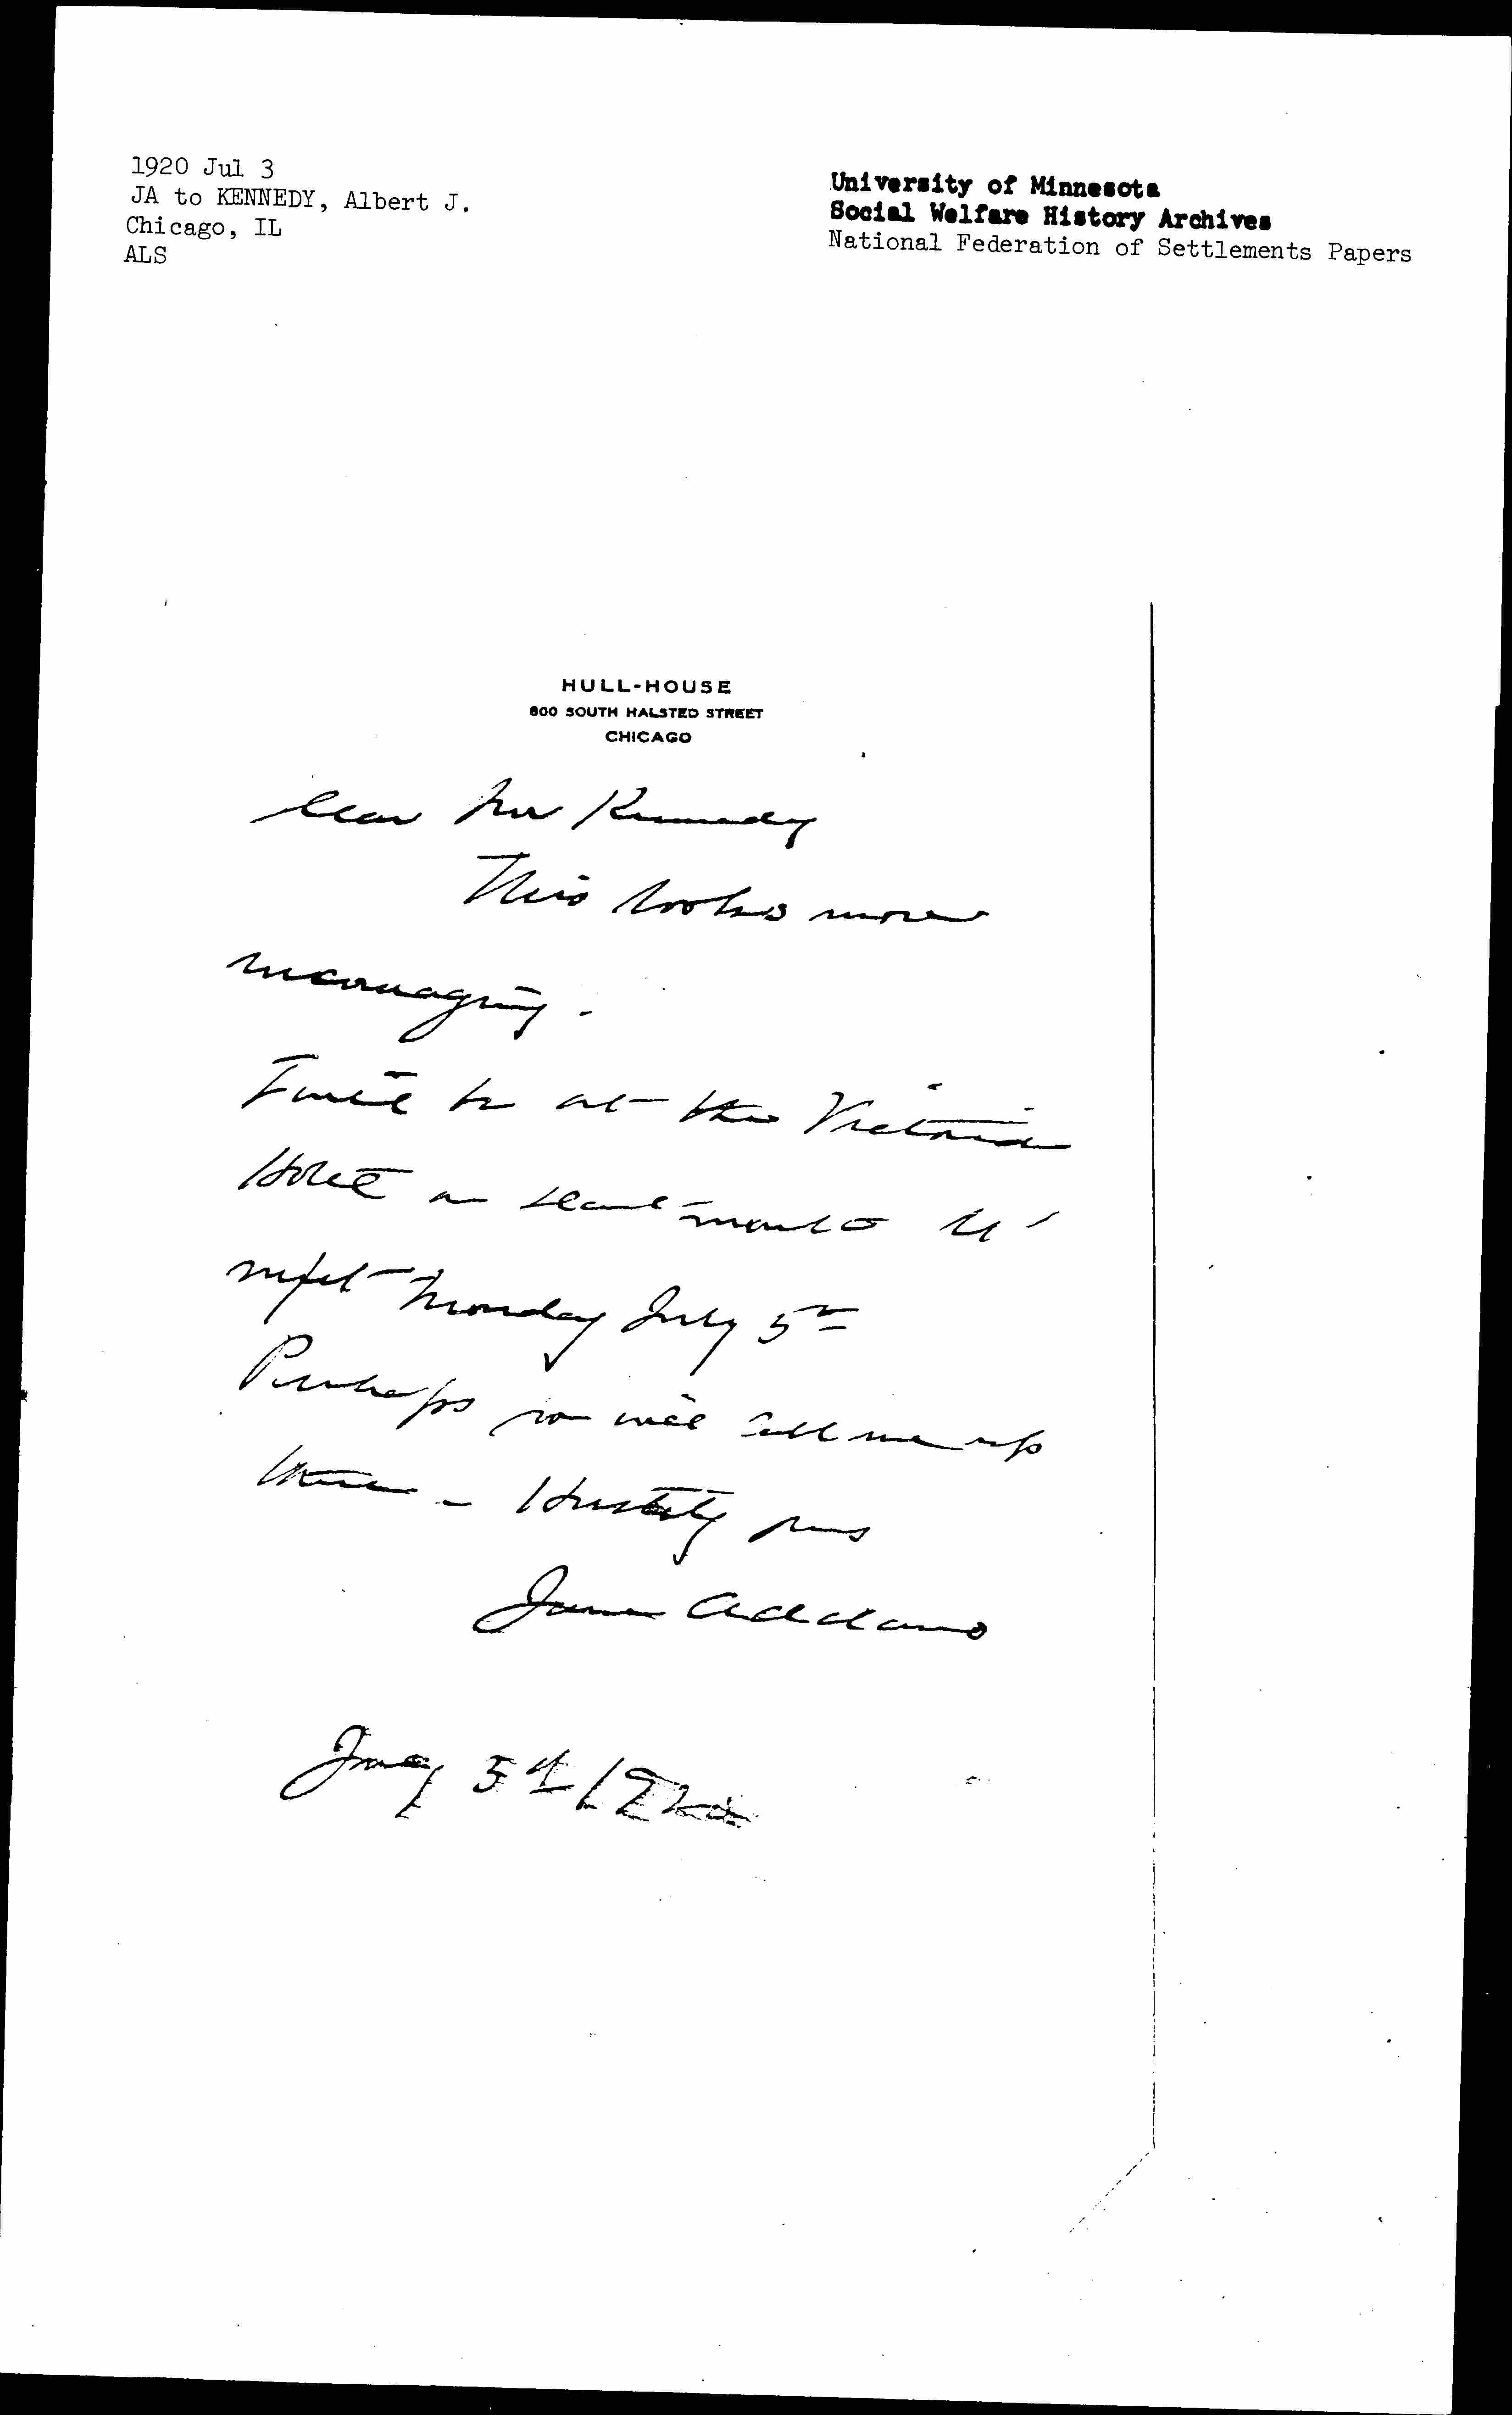 1920 Jul 3
JA to KENNEDY, Albert J.
Chicago, IL
ALS
University of Minnesota
Social Welfare History Archives
National Federation of Settlements Papers
HULL-HOUSE
800 SOUTH HALSTED STREET
CHICAGO
Dear Mr Kennedy
This looks more
encouraging.
I will be at the Victoria
Hotel
Monday July 5th
Perhaps you will call me up
there - Hastily yours
Jane Addams
July